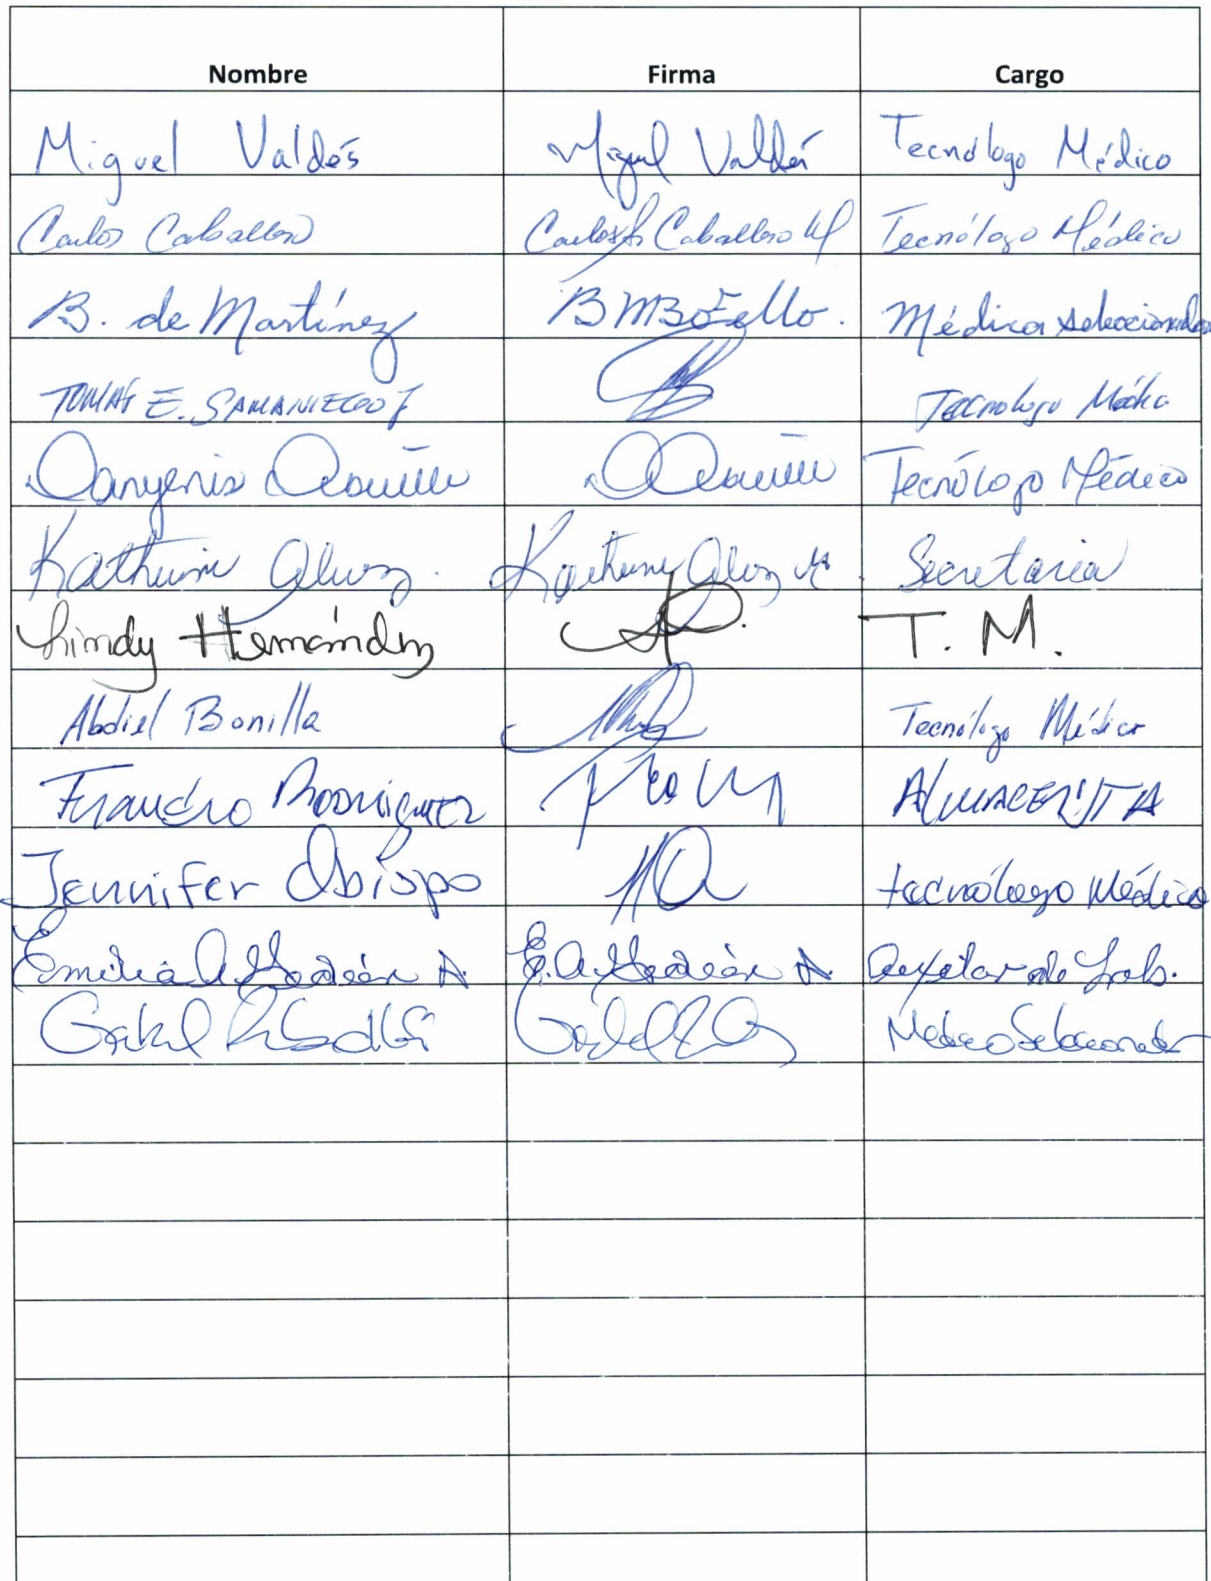 Nombre Firma Cargo
Miguel Valdés Miguel Valdés Tecnólogo Médico
Carlos Caballero Carlos Caballero M Tecnólogo Médico
B. de Martínez BMBotello. Médica seleccionadora
TOMÁS E. SAMANIEGO J Tecnologo Médico
Danyenis Tecnólogo Médico
Katherine Secretaria
Lindy Hernández T. M.
Abdiel Bonilla Tecnólogo Médico
Rodriguez ALMACENISTA
Jennifer Obispo tecnólogo Médico
Emilia A. E. A. Auxiliar de Lab.
Médico Seleccionador